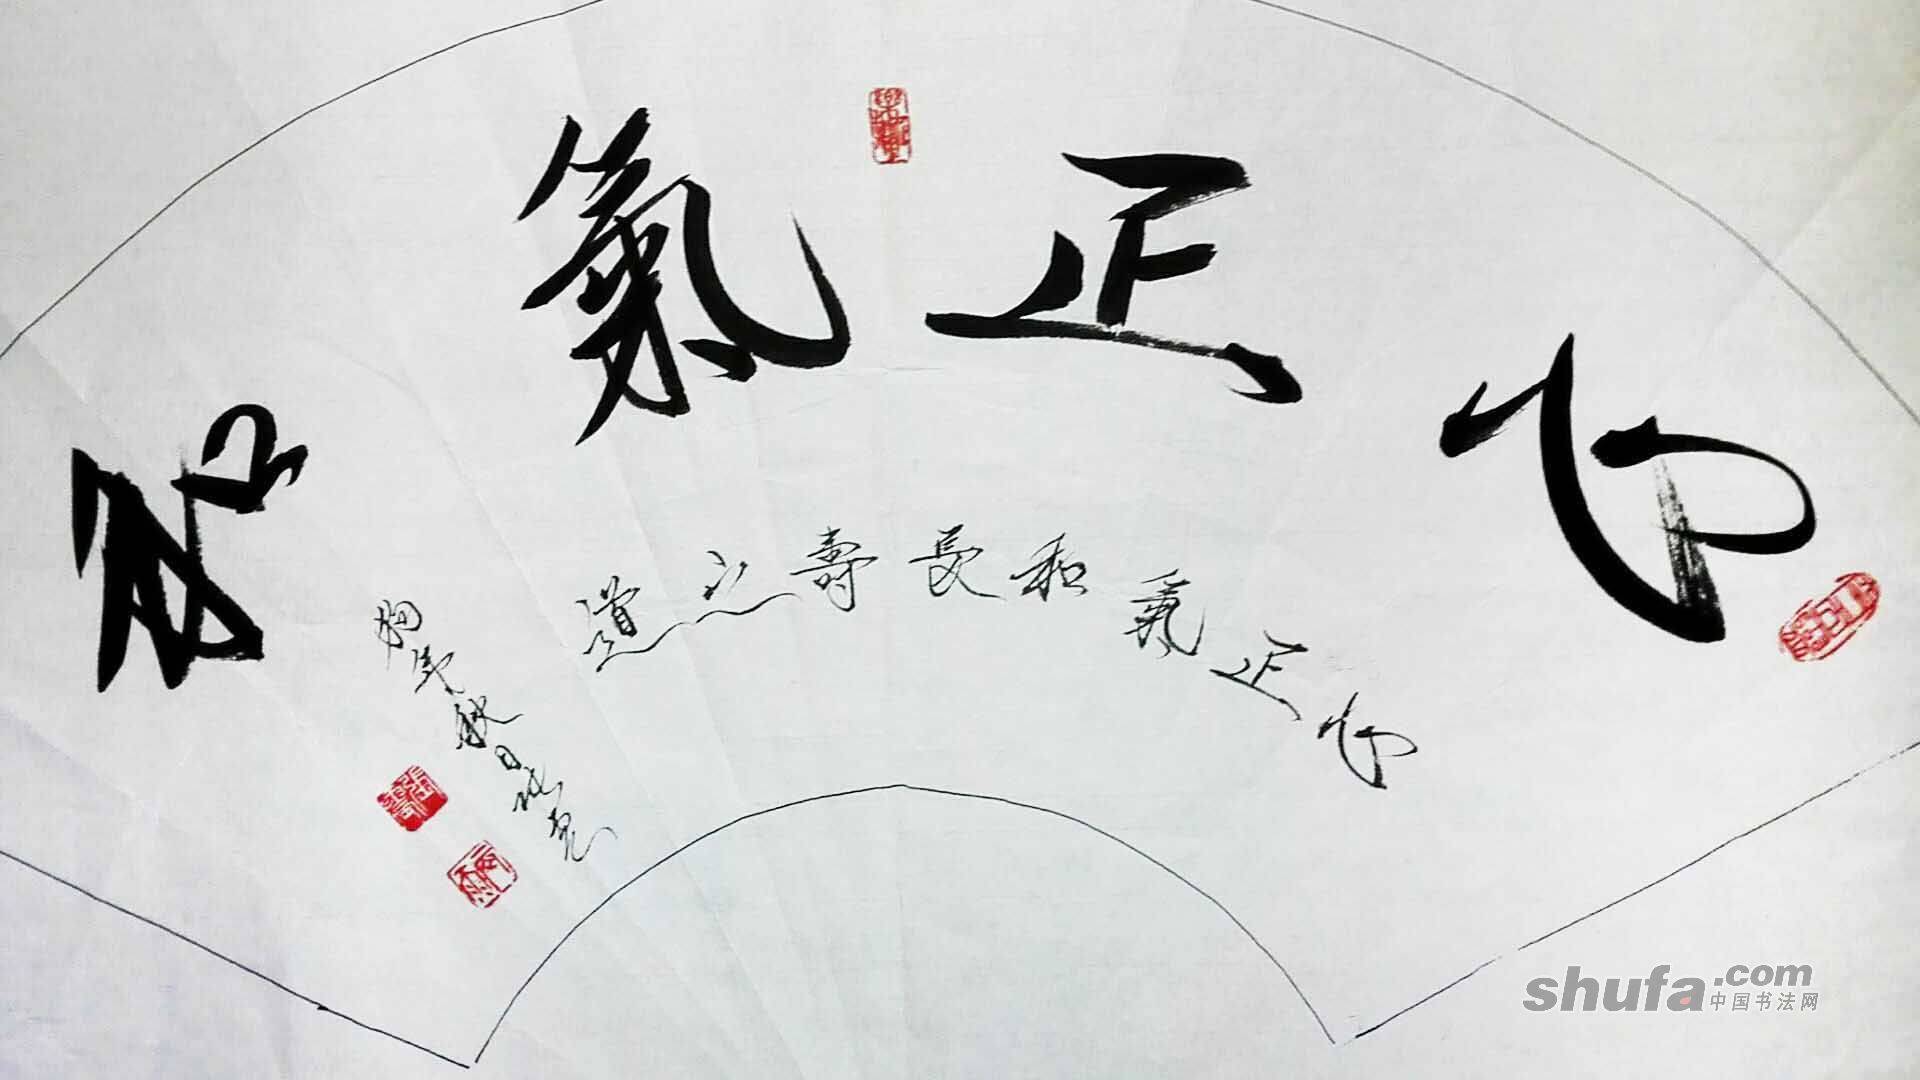 心正氣和
心正氣和長壽之道
狗年秋日
shufa.com
中国书法网